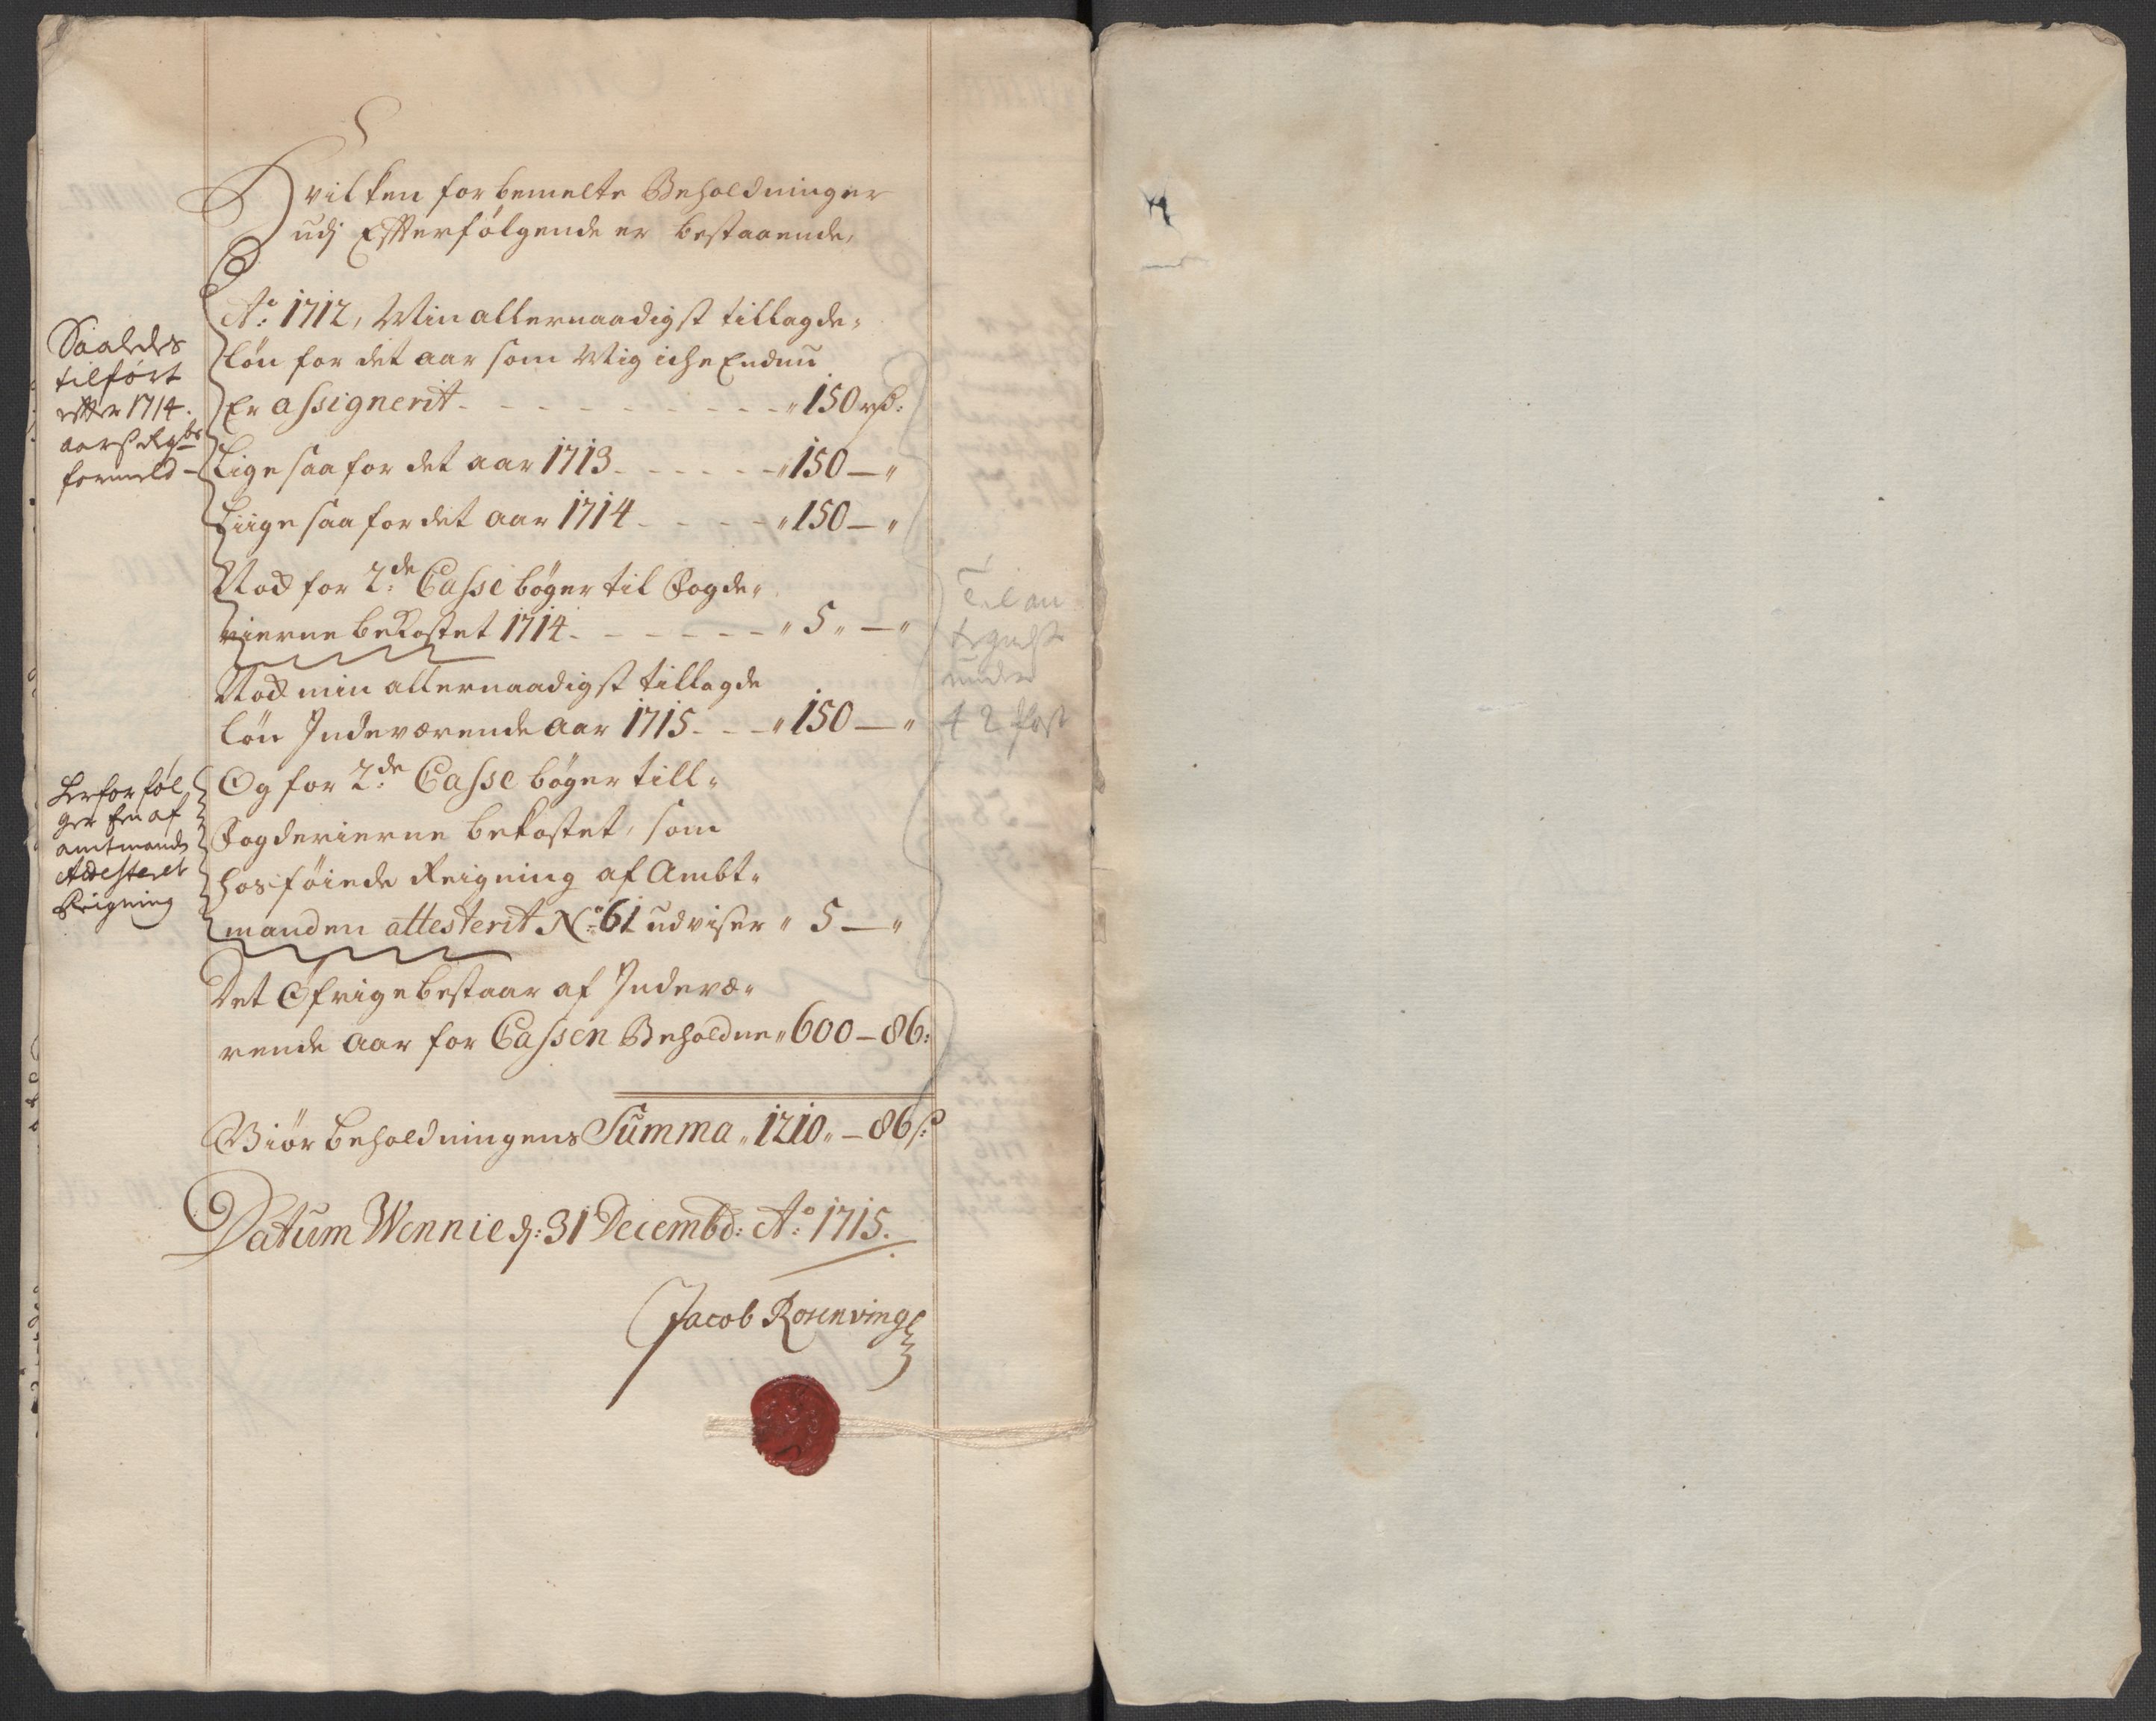 Hvilken forbemelte Beholdninger
udj Effterfølgende er bestaaende,
Ao: 1712, Min allernaadigst tillagde,
løn for det aar som Mig iche Endnu
Er assignerit - - - - - - - - - " 150 rd:
Lige saa for det aar 1713 - - - - - " 150 — "
Liige saa for det aar 1714 - - - - " 150 — "
Nock for 2de: Casse bøger til Fogde"
rierne bekostet 1714 - - - - - - " 5 " — "
Nock min allernaadigst tillagde
løn Indeværende aar 1715 - - - " 150 — "
Og for 2de: Casse bøger till"
Fogderierne bekostet, som
hosføiede Reigning af Ambt"
manden attesterit No: 61 udviser " 5 — "
Det Øfrige bestaar af Indevæ"
rende aar for Cassen Beholdne " 600 — 86:
Giør beholdningens Summa " 1210 " — 86 s:
Datum Wennie d: 31 Decembd: Ao: 1715.
Jacob Rosenvinge
Saaledes
tilført
effter 1714.
aars Rgbs
formeld —
Herfor føl
ger En af
amtmands
Attesteret
Reigning
Til an
tegnelse
under
42 Post